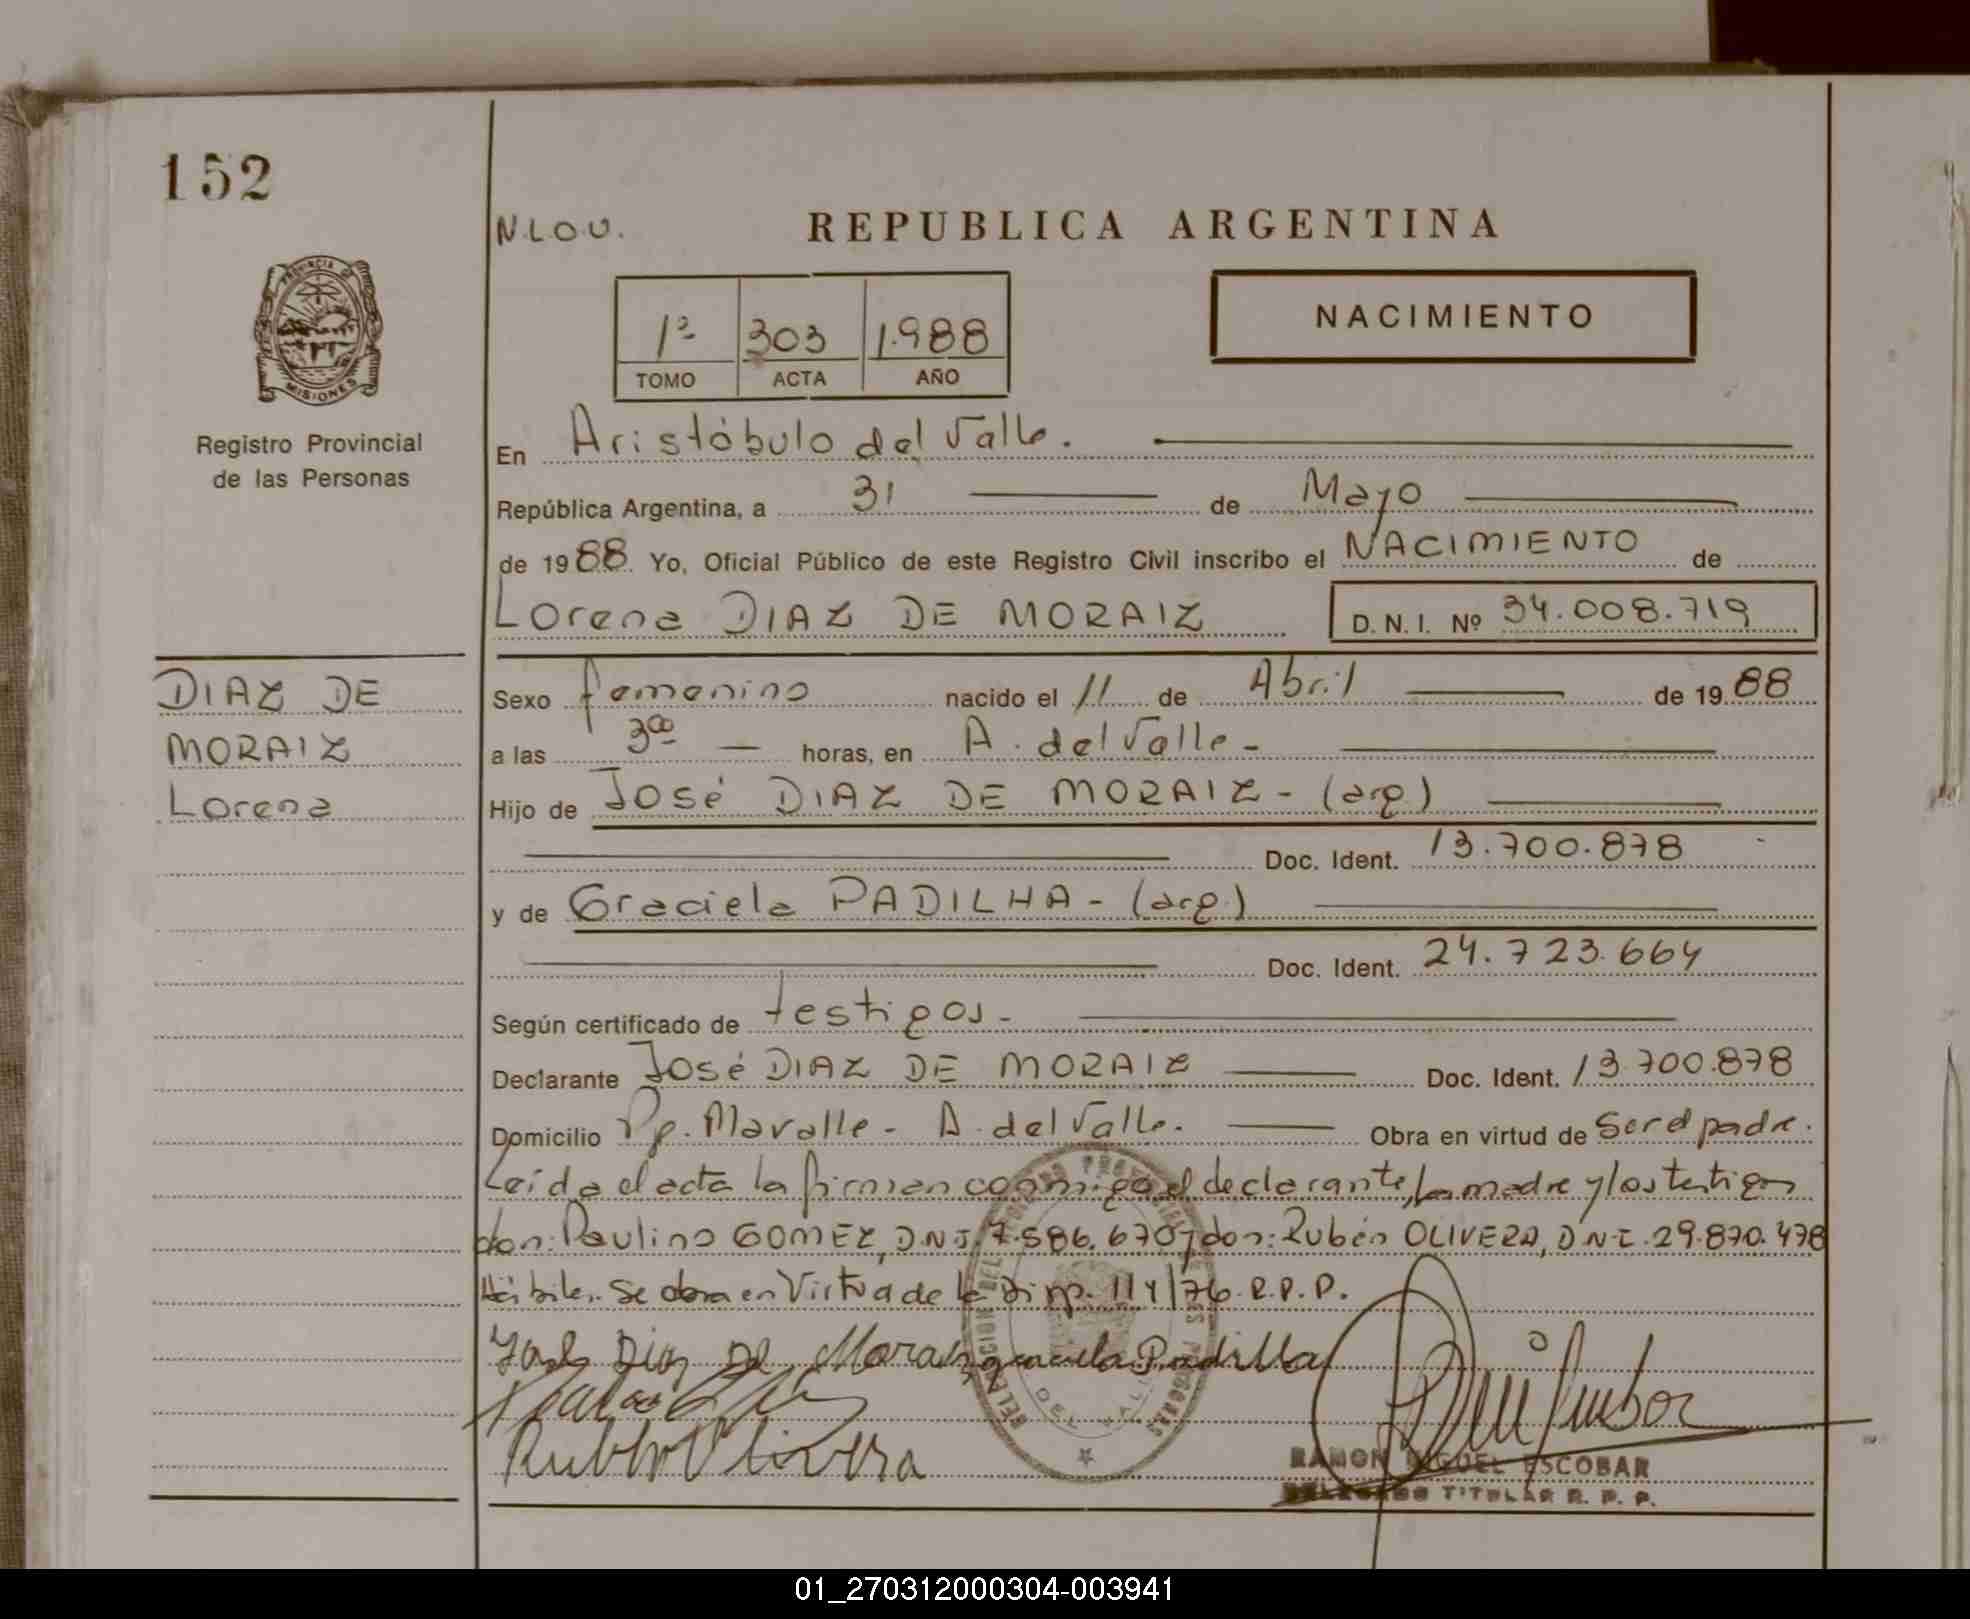 152
N.L.O.U.
REPUBLICA ARGENTINA
PROVINCIA DE
MISIONES
Registro Provincial
de las Personas
1º 303 1.988
TOMO ACTA AÑO
NACIMIENTO
En Aristóbulo del Valle.
República Argentina, a 31 de Mayo
de 1988. Yo, Oficial Público de este Registro Civil inscribo el NACIMIENTO de
Lorena DIAZ DE MORAIZ D.N.I. Nº 34.008.719
DIAZ DE
MORAIZ
Lorena
Sexo femenino nacido el 11 de Abril de 1988
a las 3⁰⁰ horas, en A. del Valle-
Hijo de José DIAZ DE MORAIZ- (arg)
Doc. Ident. 13.700.878
y de Graciela PADILHA- (arg.)
Doc. Ident. 24.723.664
Según certificado de testigos-
Declarante José DIAZ DE MORAIZ Doc. Ident. 13.700.878
Domicilio Pje. Mavalle- A. del Valle. Obra en virtud de Ser el padre.
Leida el acta la firman conmigo el declarante, la madre y los testigos
don: Paulino GOMEZ, D.N.I. 7.586.670 y don: Rubén OLIVERA, D.N.I. 29.870.478
Hábiles. Se obra en Virtud de la Disp. 114/76. R.P.P.
José Diaz De Moraiz graciela Padilla
Ruben Olivera
RAMON MIGUEL ESCOBAR
DELEGADO TITULAR R. P. P.
DEL VALLE
01_270312000304-003941